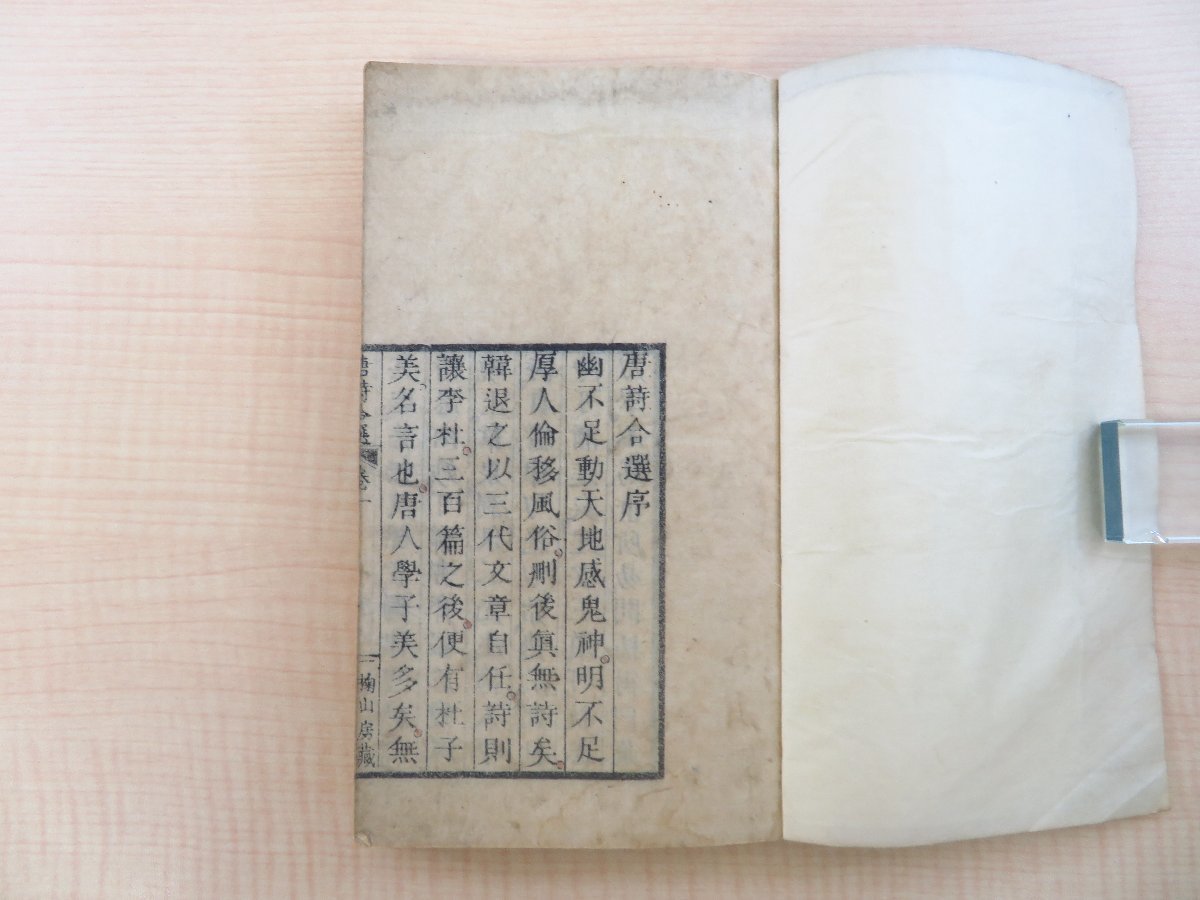 唐詩合選序
幽不足動天地感鬼神。明不足
厚人倫移風俗。刪後眞無詩矣。
韓退之以三代文章自任。詩則
讓李杜。三百篇之後。便有杜子
美。名言也。唐人學子美多矣。無
唐詩合選 卷一 一 掬山房藏